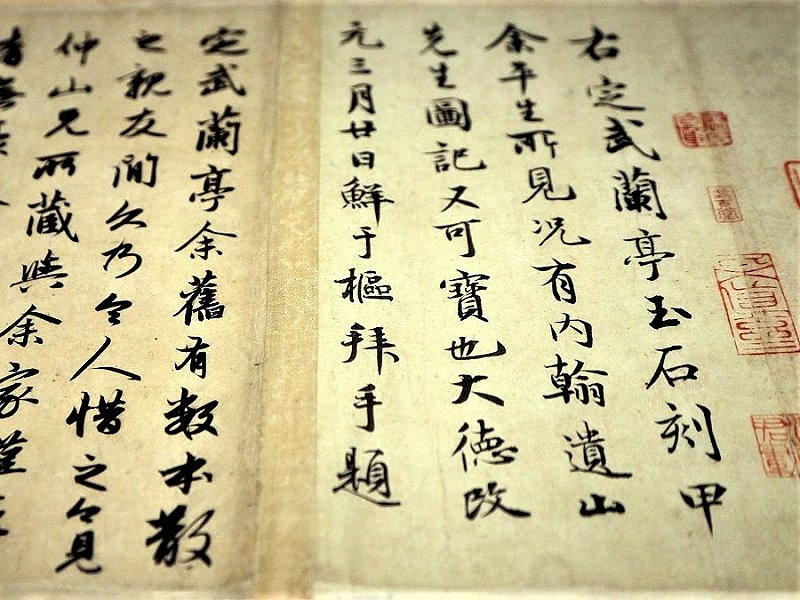 右定武蘭亭玉石刻甲
余平生所見况有内翰遺山
先生圖記又可寶也大德改
元三月廿日鮮于樞拜手題
定武蘭亭余舊有数本散
之親友間久乃令人惜
仲山兄所藏與余家
之今見